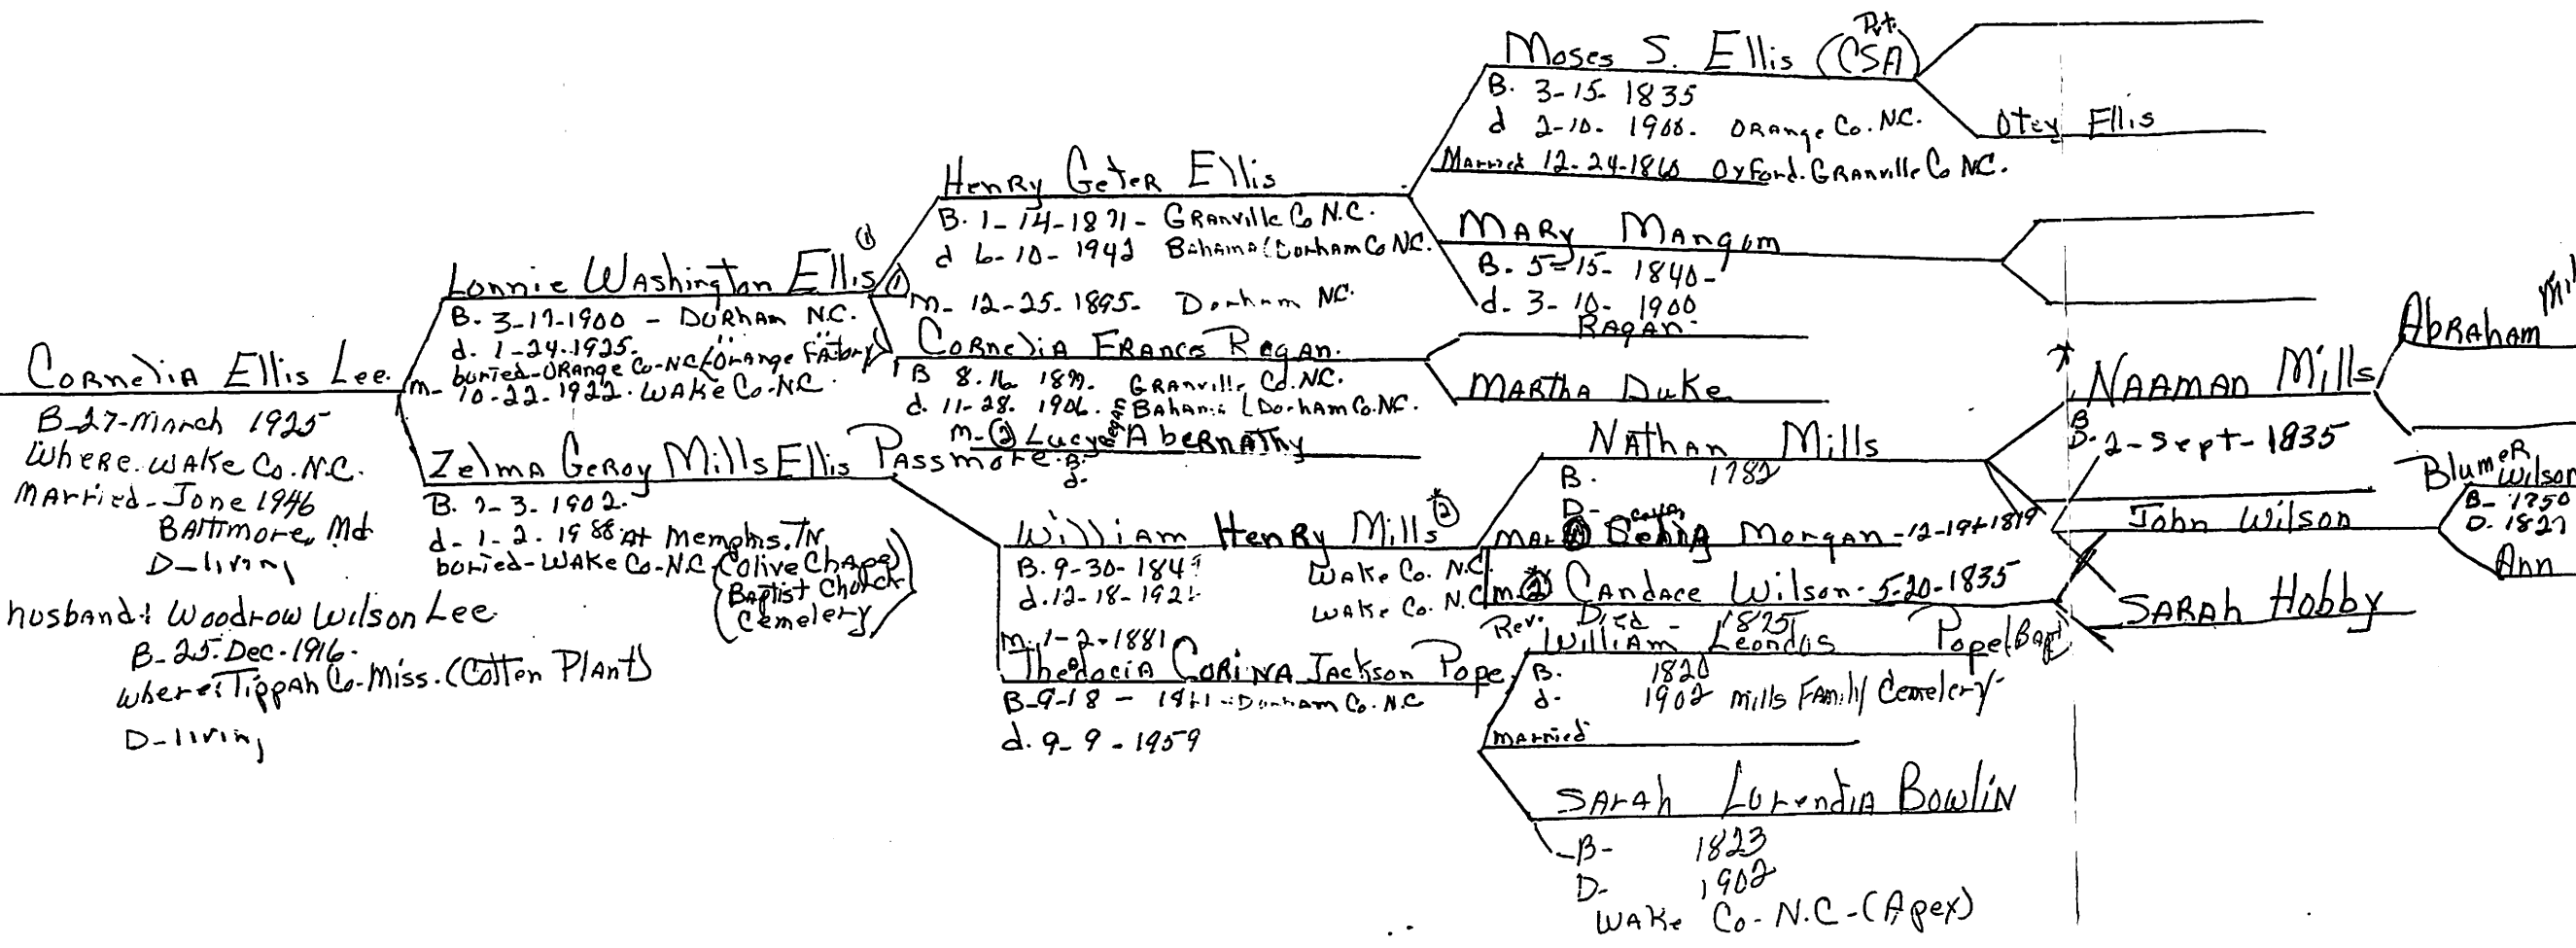 Cornelia Ellis Lee.
B-27-March 1925
Where. Wake Co. N.C.
Married-June 1946
Baltimore, Md
D-living
husband: Woodrow Wilson Lee
B-25-Dec-1916-
where: Tippah Co-Miss. (Cotten Plant)
D-living
Lonnie Washington Ellis ①
B. 3-17-1900 - Durham N.C.
d. 1-24-1925.
buried-Orange Co-NC (Orange Factory)
m- 10-22-1922. Wake Co-NC.
Zelma Geroy Mills Ellis Passmore.
B. 7-3-1902.
d- 1-2-1988 At Memphis, TN
buried-Wake Co-N.C (Colive Chapel
Baptist Church
Cemelery)
①
Henry Geter Ellis
B. 1-14-1871- Granville Co N.C.
d 6-10-1942 Bahama (Durham Co NC.
m- 12-25-1895- Durham NC.
Cornelia Frances Ragan.
B 8-16 GRanville Co. N.C.
d. 11-28. 1906. Bahama (Durham Co. NC.
m-② Lucy Ragan Abernathy
B-
d-
William Henry Mills *②
B. 9-30-184 Wake Co. N.C.
d. 12-18-192 Wake Co. N.C
m. 1-2-1881
Thedocia Corina Jackson Pope
B-9-18 - Durham Co. N.C
d. 9-9-1959
Moses S. Ellis (Pvt. CSA)
B. 3-15-1835
d 2-10- Orange Co. N.C.
Married 12-24-1860 Oxford. Granville Co NC.
Mary Mangum
B. 5-15-1840-
d. 3-10-1900
Ragan-
Martha Duke
Nathan Mills
B. 1782
D-
Mar ① Morgan-12-19-1819
m. *② Candace Wilson-5-20-1835
Died - 1825
Rev. William Leondas Pope (Bapt
B. 1820
d- 1902 Mills Family Cemelery-
married
Sarah Lurendia Bowlin
-B- 1823
D- 1902
Wake Co-N.C-(Apex)
Otey Ellis
*
Naaman Mills
B
D. 2-Sept-1835
John Wilson
Sarah Hobby
Abraham Mil
Blumer Wilson
B- 1750
D. 1827
Ann